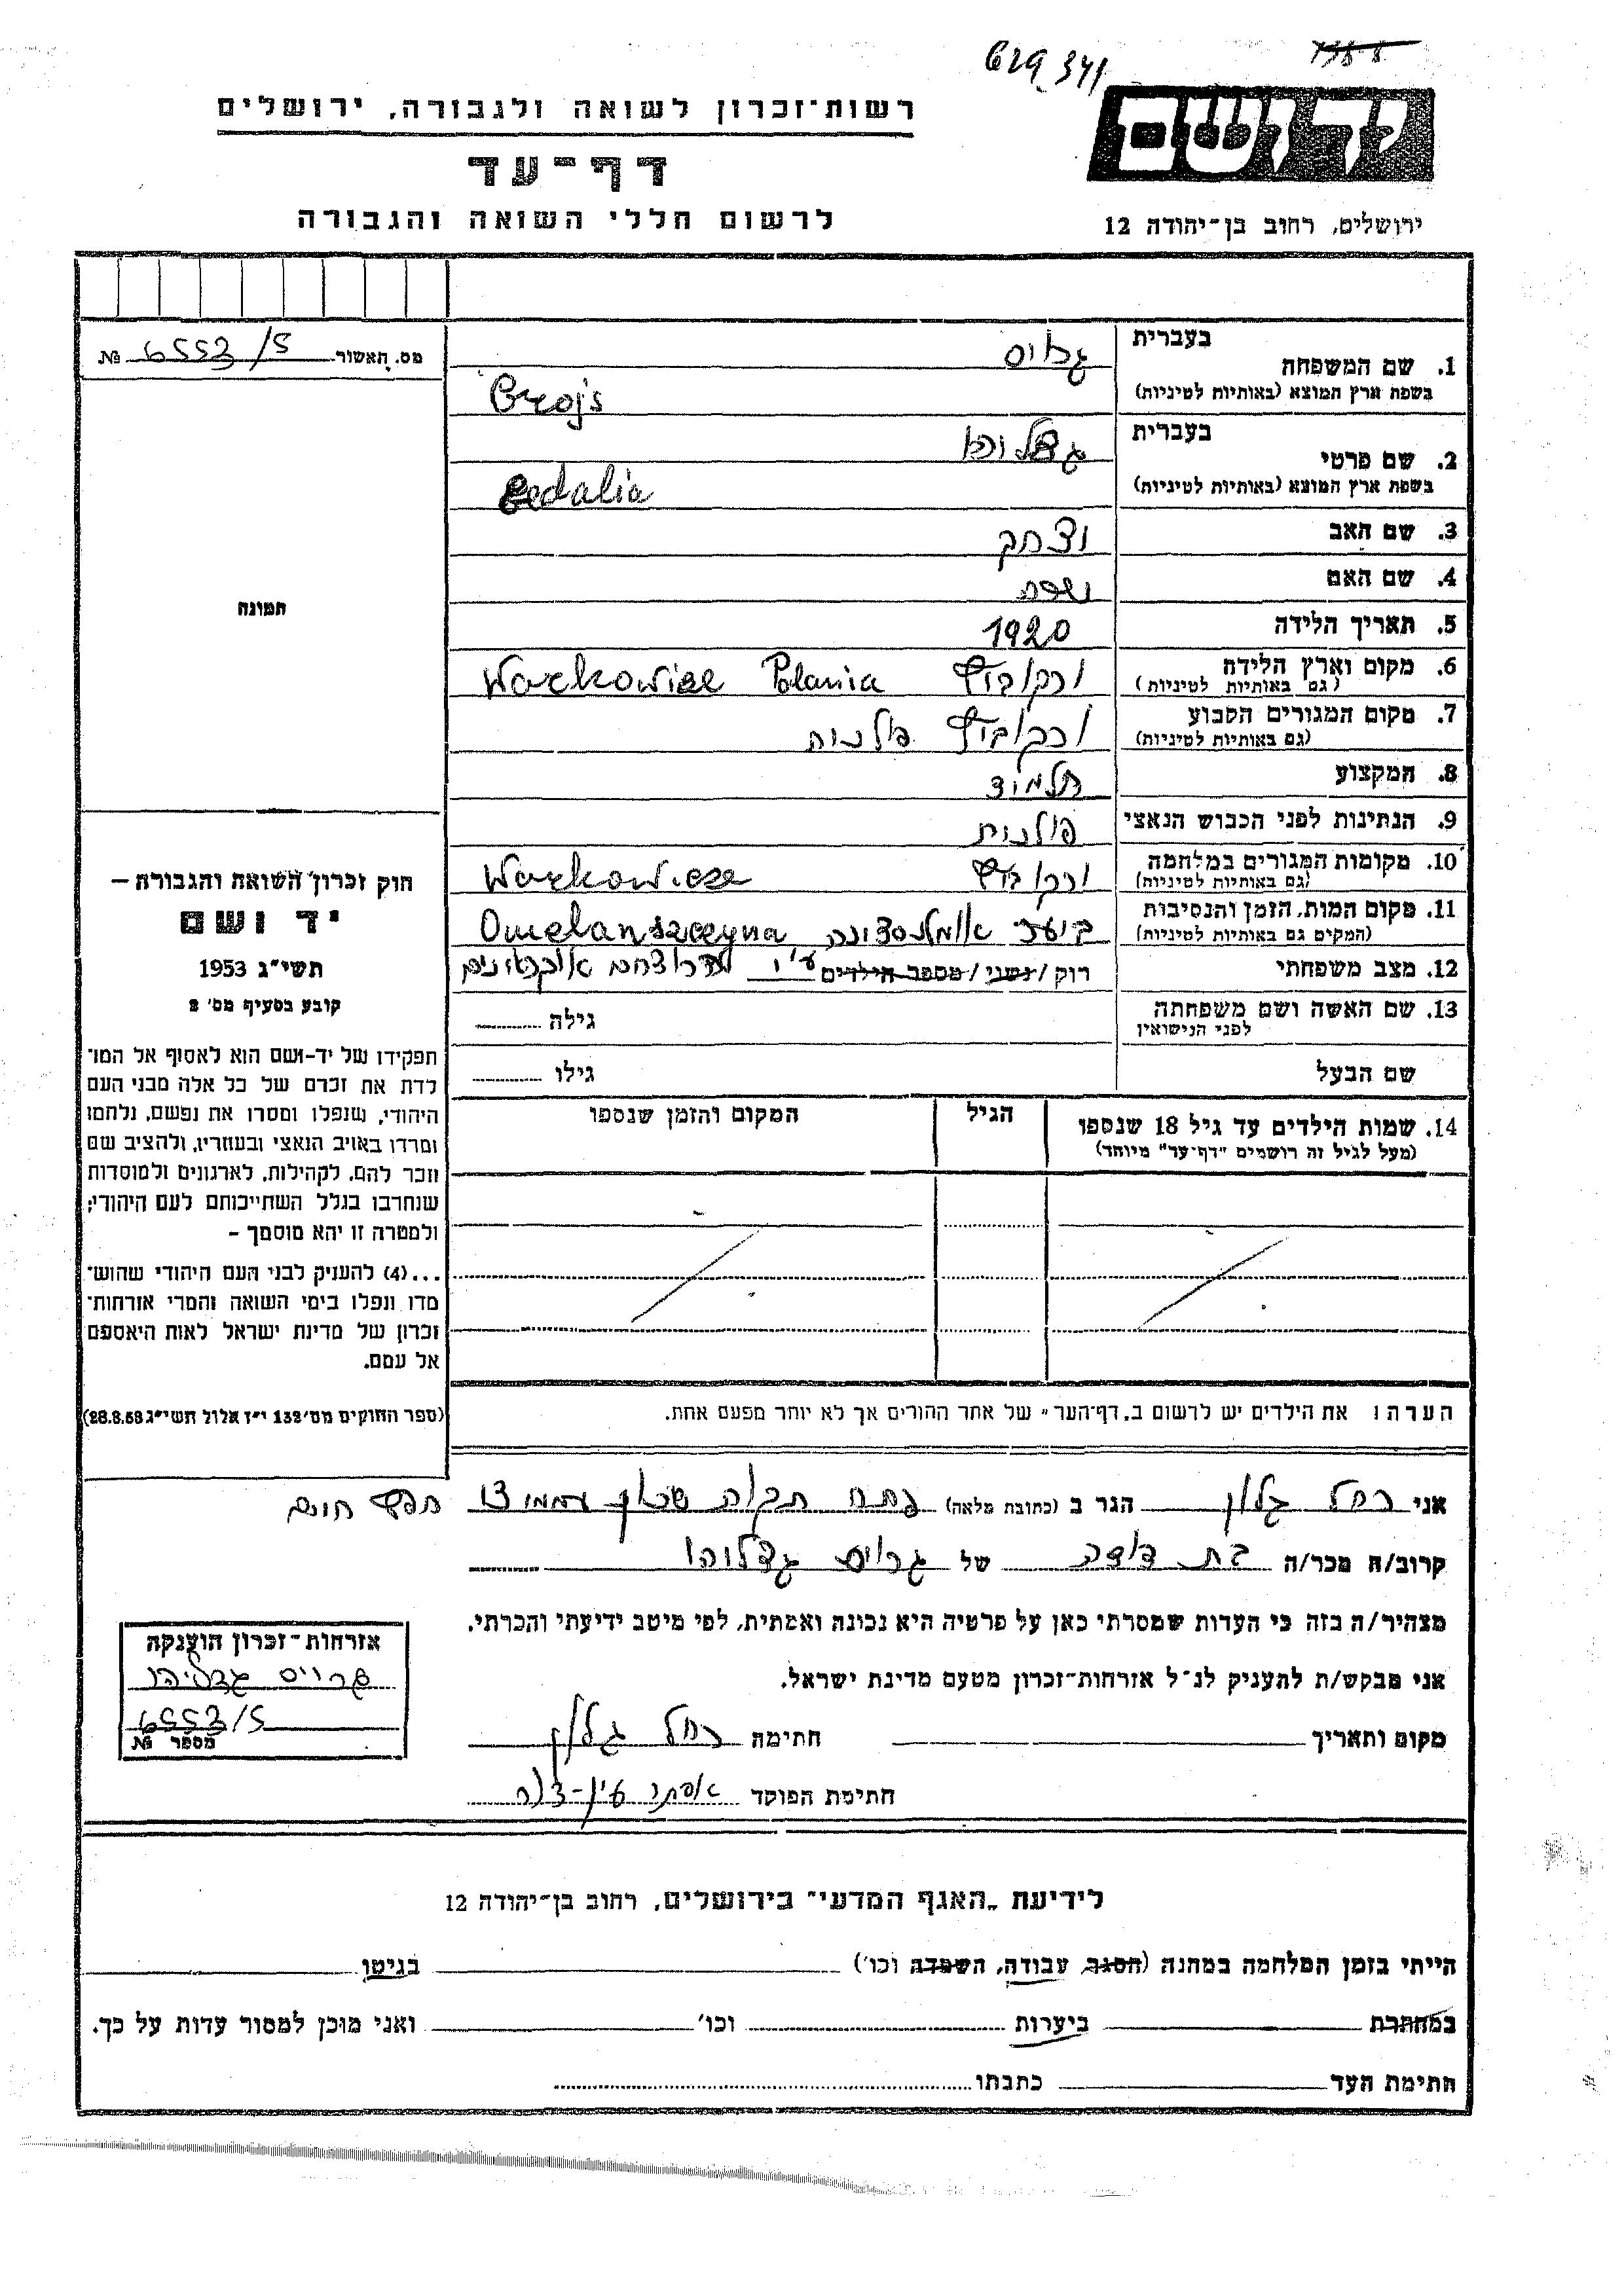 629 341
רשות־זכרון לשואה ולגבורה, ירושלים
דף־עד
לרשום חללי השואה והגבורה
יד ושם
ירושלים, רחוב בן־יהודה 12
מס. תאשור 6553/5 №
תמונה
1. שם המשפחה בעברית גרויס
בשפת ארץ המוצא (באותיות לטיניות) Grojs
2. שם פרטי בעברית גדליהו
בשפת ארץ המוצא (באותיות לטיניות) Gedalia
3. שם האב יצחק
4. שם האם
5. תאריך הלידה 1920
6. מקום וארץ הלידה ורקוביץ Workowicze Polania
(גם באותיות לטיניות)
7. מקום המגורים הקבוע ורקוביץ פולניה
(גם באותיות לטיניות)
8. המקצוע תלמיד
9. הנתינות לפני הכבוש הנאצי פולנית
10. מקומות המגורים במלחמה ורקוביץ Workowicze
(גם באותיות לטיניות)
11. מקום המות, הזמן והנסיבות ביער Omelanszczyna
(המקום גם באותיות לטיניות)
12. מצב משפחתי רוק/נשוי/מספר הילדים ע"י אוקראינים
13. שם האשה ושם משפחתה גילה
לפני הנישואין
שם הבעל גילו
14. שמות הילדים עד גיל 18 שנספו הגיל המקום והזמן שנספו
(מעל לגיל זה רושמים "דף־עד" מיוחד)
הערה: את הילדים יש לרשום ב„דף־העד" של אחד ההורים אך לא יותר מפעם אחת.
חוק זכרון השואה והגבורה —
יד ושם
תשי"ג 1953
קובע בסעיף מס' 2
תפקידו של יד-ושם הוא לאסוף אל המו־
לדת את זכרם של כל אלה מבני העם
היהודי, שנפלו ומסרו את נפשם, נלחמו
ומרדו באויב הנאצי ובעוזריו, ולהציב שם
וזכר להם, לקהילות, לארגונים ולמוסדות
שנחרבו בגלל השתייכותם לעם היהודי;
ולמטרה זו יהא מוסמך —
...(4) להעניק לבני העם היהודי שהוש־
מדו ונפלו בימי השואה והמרי אזרחות־
זכרון של מדינת ישראל לאות היאספם
אל עמם.
(ספר החוקים מס' 132 י"ז אלול תשי"ג 28.8.53)
אני רחל גלון הגר ב (כתובת מלאה) פתח תקוה שכון עממי חפץ חיים
קרוב/ה מכר/ה בת דודה של גרויס גדליהו
מצהיר/ה בזה כי העדות שמסרתי כאן על פרטיה היא נכונה ואמתית, לפי מיטב ידיעתי והכרתי.
אני מבקש/ת להעניק לנ"ל אזרחות־זכרון מטעם מדינת ישראל.
מקום ותאריך חתימה רחל גלון
חתימת הפוקד אסתר
אזרחות־זכרון הוענקה
גרויס גדליהו
6553/5
מספר №
לידיעת „האגף המדעי" בירושלים, רחוב בן־יהודה 12
הייתי בזמן המלחמה במחנה (הסגר, עבודה, השמדה וכו') בגיטו
במחתרת ביערות וכו' ואני מוכן למסור עדות על כך.
חתימת העד כתבתו